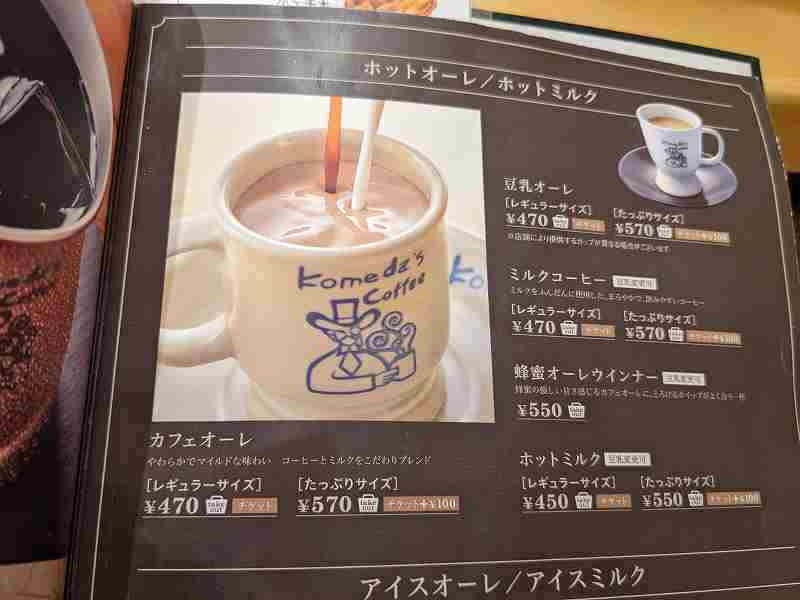 ホットオーレ／ホットミルク
Komeda's
Coffee
カフェオーレ
やわらかでマイルドな味わい　コーヒーとミルクをこだわりブレンド
[レギュラーサイズ]　[たっぷりサイズ]
¥470 take out チケット　¥570 take out チケット+¥100
豆乳オーレ
[レギュラーサイズ]　[たっぷりサイズ]
¥470 take out チケット　¥570 take out チケット+¥100
※店舗により提供するカップが異なる場合がございます
ミルクコーヒー 豆乳変更可
ミルクをふんだんに使用した、まろやかで、飲みやすいコーヒー
[レギュラーサイズ]　[たっぷりサイズ]
¥470 take out チケット　¥570 take out チケット+¥100
蜂蜜オーレウインナー 豆乳変更可
蜂蜜の優しい甘さ感じるカフェオーレに、とろけるホイップがよく合う一杯
¥550 take out
ホットミルク 豆乳変更可
[レギュラーサイズ]　[たっぷりサイズ]
¥450 take out チケット　¥550 take out チケット+¥100
アイスオーレ／アイスミルク